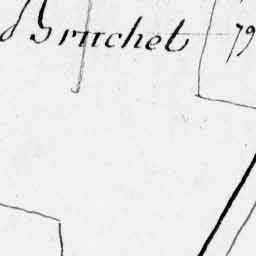 Bruchet 79